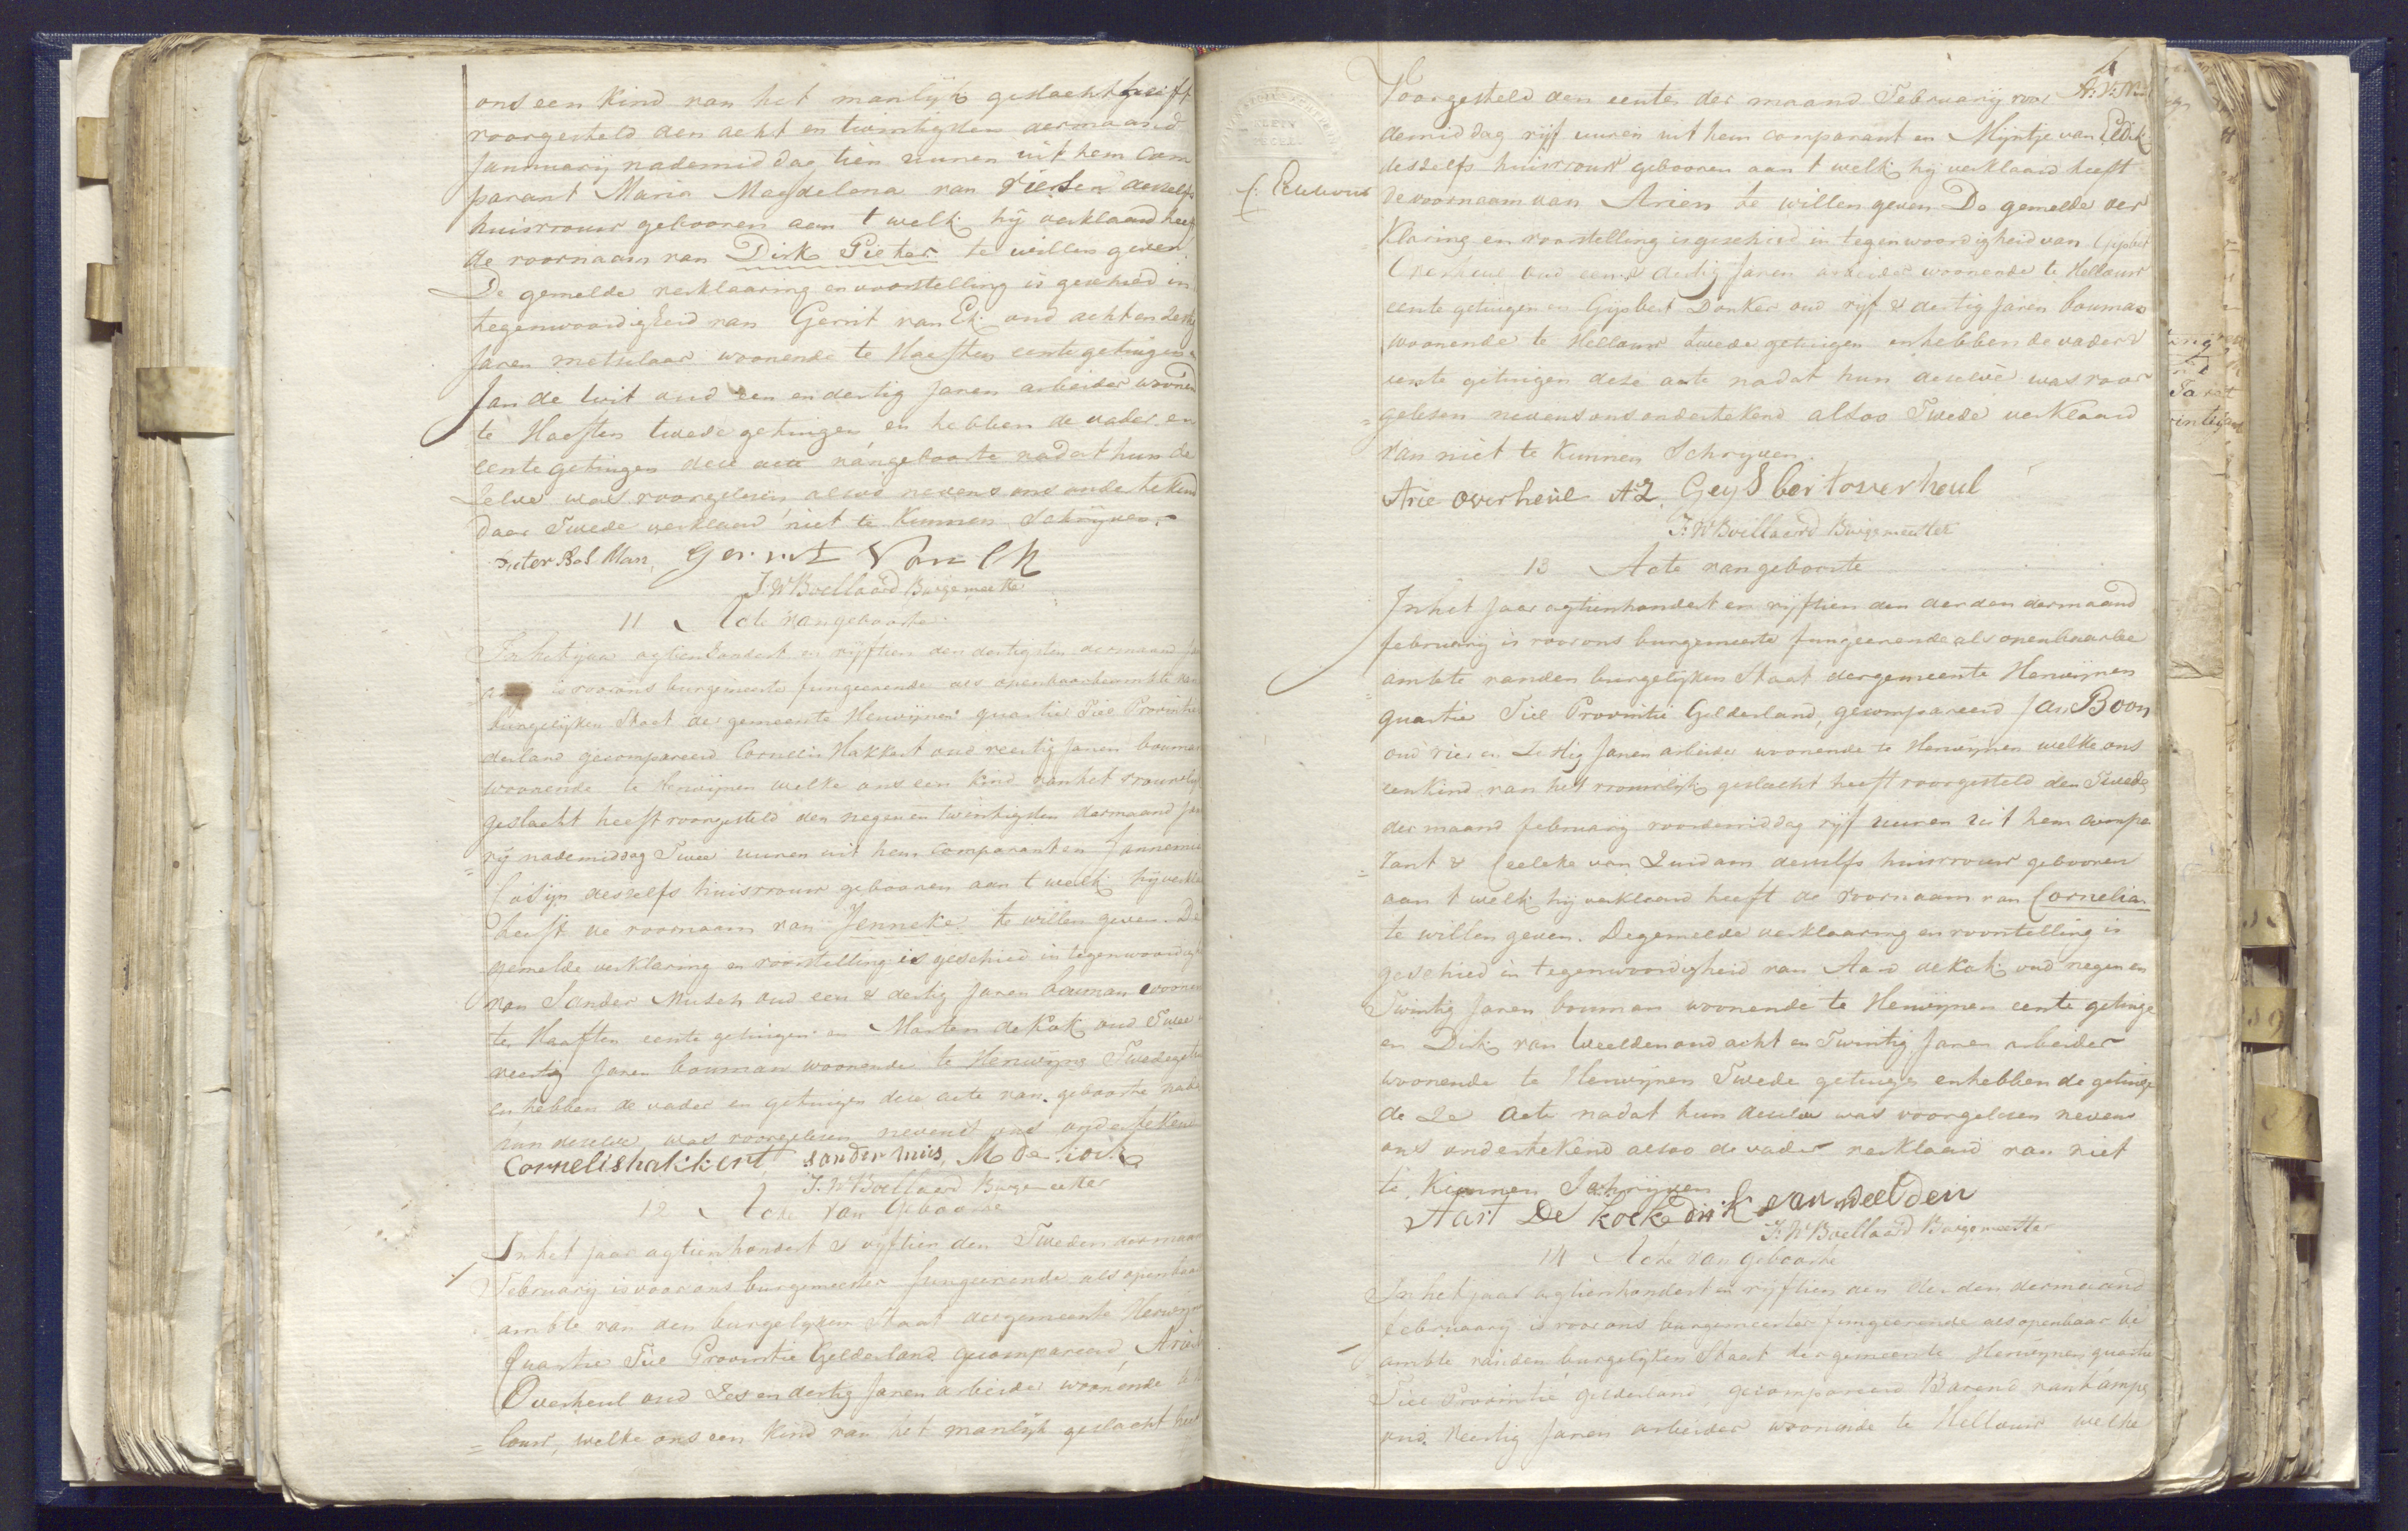 ons een kind van het manlijk geslacht heeft
voorgesteld den acht en twintigsten dermaand
Januuarij nademiddag tien uuren uit hem Com
parant Maria Magdelena van Rielsen deszelfs
huisvrouw gebooren aan t welk hij verklaard heeft
de voornaam van Dirk Pieter te willen geven
De gemelde verklaaring en voorstelling is geschied in
tegenwoordigheid van Gerrit van Ek oud acht en dertig
Jaren metselaar woonende te Haeften eerste getuigen
Jan de Wit oud een en dertig Jaren arbeider woonen
te Haeften twede getuigen en hebben de vader en
eerste getuigen deze acte van geboorte nadat hun de
Zelve was voorgelesen nevens ons ondertekend
daar Twede verklaard niet te kunnen Schrijven.
Pieter Bol Man, Gerrit Van Ek
J:W Boellaard Burgemeester
11 Acte van geboorte
In het jaar agtienhondert en vijftien den dertigsten dermaand Ja
is voorons burgemeester fungeerende als openbaarbeambte van
burgelijken Staat der gemeente Herwijnen quartier Tiel Provintie
derland gecompareerd Cornelis Hakkert oud veertig Jaren bouman
woonende te Herwijnen welke ons een kind van het vrouwelijk
geslacht heeft voorgesteld den negen en twintigsten dermaand Jan
rij nademiddag Twee uuren uit hem comparant en Jannemie
Cosijn deszelfs huisvrouw gebooren aan t welk hij verkla
heeft de voornaam van Jenneke te willen geven. De
gemelde verklaring en voorstelling is geschied in tegenwoordigh
van Sander Musch oud een & dertig Jaren bouman woonen
te Haaften eerste getuigen en Marten de Kok oud Twee
veertig Jaren bouman woonende te Herwijne Twedegetui
en hebben de vader en getuigen deze acte van geboorte nada
hun deselve was voorgelesen nevenst ons ondertekend
Cornelis hakkert sander muis, M de kock
J:W Boellaard Burgemeester
12 Acte van Geboorte
In het jaar agtienhondert & vijftien den Tweden dermaand
February is voor ons burgemeester fungeerende als openbaar
ambte van den burgelyken Staat dergemeente Herwijne
Quartier Tiel Provintie Gelderland gecompareerd Arie
Overheul oud Zes en dertig Jaren arbeider woonende te Hel
louw, welke ons een kind van het manlijk geslacht heeft
Voorgesteld den eersten der maand February voor
demiddag vijf uuren uit hem comparant en Mijntje van Eldik
deszelfs huisvrouw gebooren aan t welk hij verklaard heeft
de voornaam van Arien te willen geven De gemelde ver
Klaring en voorstelling is geschied in tegenwoordigheid van Gijsbert
Overheul oud een & dertig Jaren arbeider woonende te Hellouw
eerste getuigen en Gijsbert Donker oud vijf & dertig Jaren bouman
woonende te Hellouw twede getuigen en hebben de vader &
eerste getuigen deze acte nadat hun deselve was voor
gelesen nevens ons ondertekend alsoo Twede verklaard
van niet te kunnen Schryven.
Arie overheul AZ. Geysbert overheul
J:W Boellaard Burgemeester
13 Acte van geboorte
In het Jaar agtienhondert en vijftien den derden dermaand
february is voorons burgemeester fungeerende als openbaarbe
ambte vanden burgelyken Staat dergemeente Herwynen
quartier Tiel Provintie Gelderland, gecompareerd Jan Boon
oud vier en Zestig Jaren arbeider woonende te Herwijnen welke ons
een kind van het vrouwelijk geslacht heeft voorgesteld den Twede
der maand february voordemiddag vijf uuren uit hem compa
rant & Ceeleke van Zuidam deszelfs huisvrouw gebooren
aan t welk hij verklaard heeft de voornaam van Cornelia
te willen geven. De gemelde verklaaring en voorstelling is
geschied in tegenwoordigheid van Aard de Kok oud negen en
Twintig Jaren bouman woonende te Herwijnen eerste getuige
en Dirk van Weelden oud acht en Twintig Jaren arbeider
woonende te Herwijnen Twede getuigen en hebben de getuige
de Ze Acte nadat hun deselve was voorgelesen nevens
ons ondertekend alsoo de vader verklaard van niet
te Kunnen Schrijven
Aart De kock dirk van weelden
J:W Boellaard Burgemeester
14 Acte van geboorte
In het jaar agtienhondert en vijftien den derden dermaand
february is voor ons burgemeester fungeerende als openbaar be
ambte vanden burgelijken Staat dergemeente Herwynen quartier
Tiel Provintie gelderland, gecompareerd Barend van Kampe
oud veertig Jaren arbeider woonende te Hellouw welke